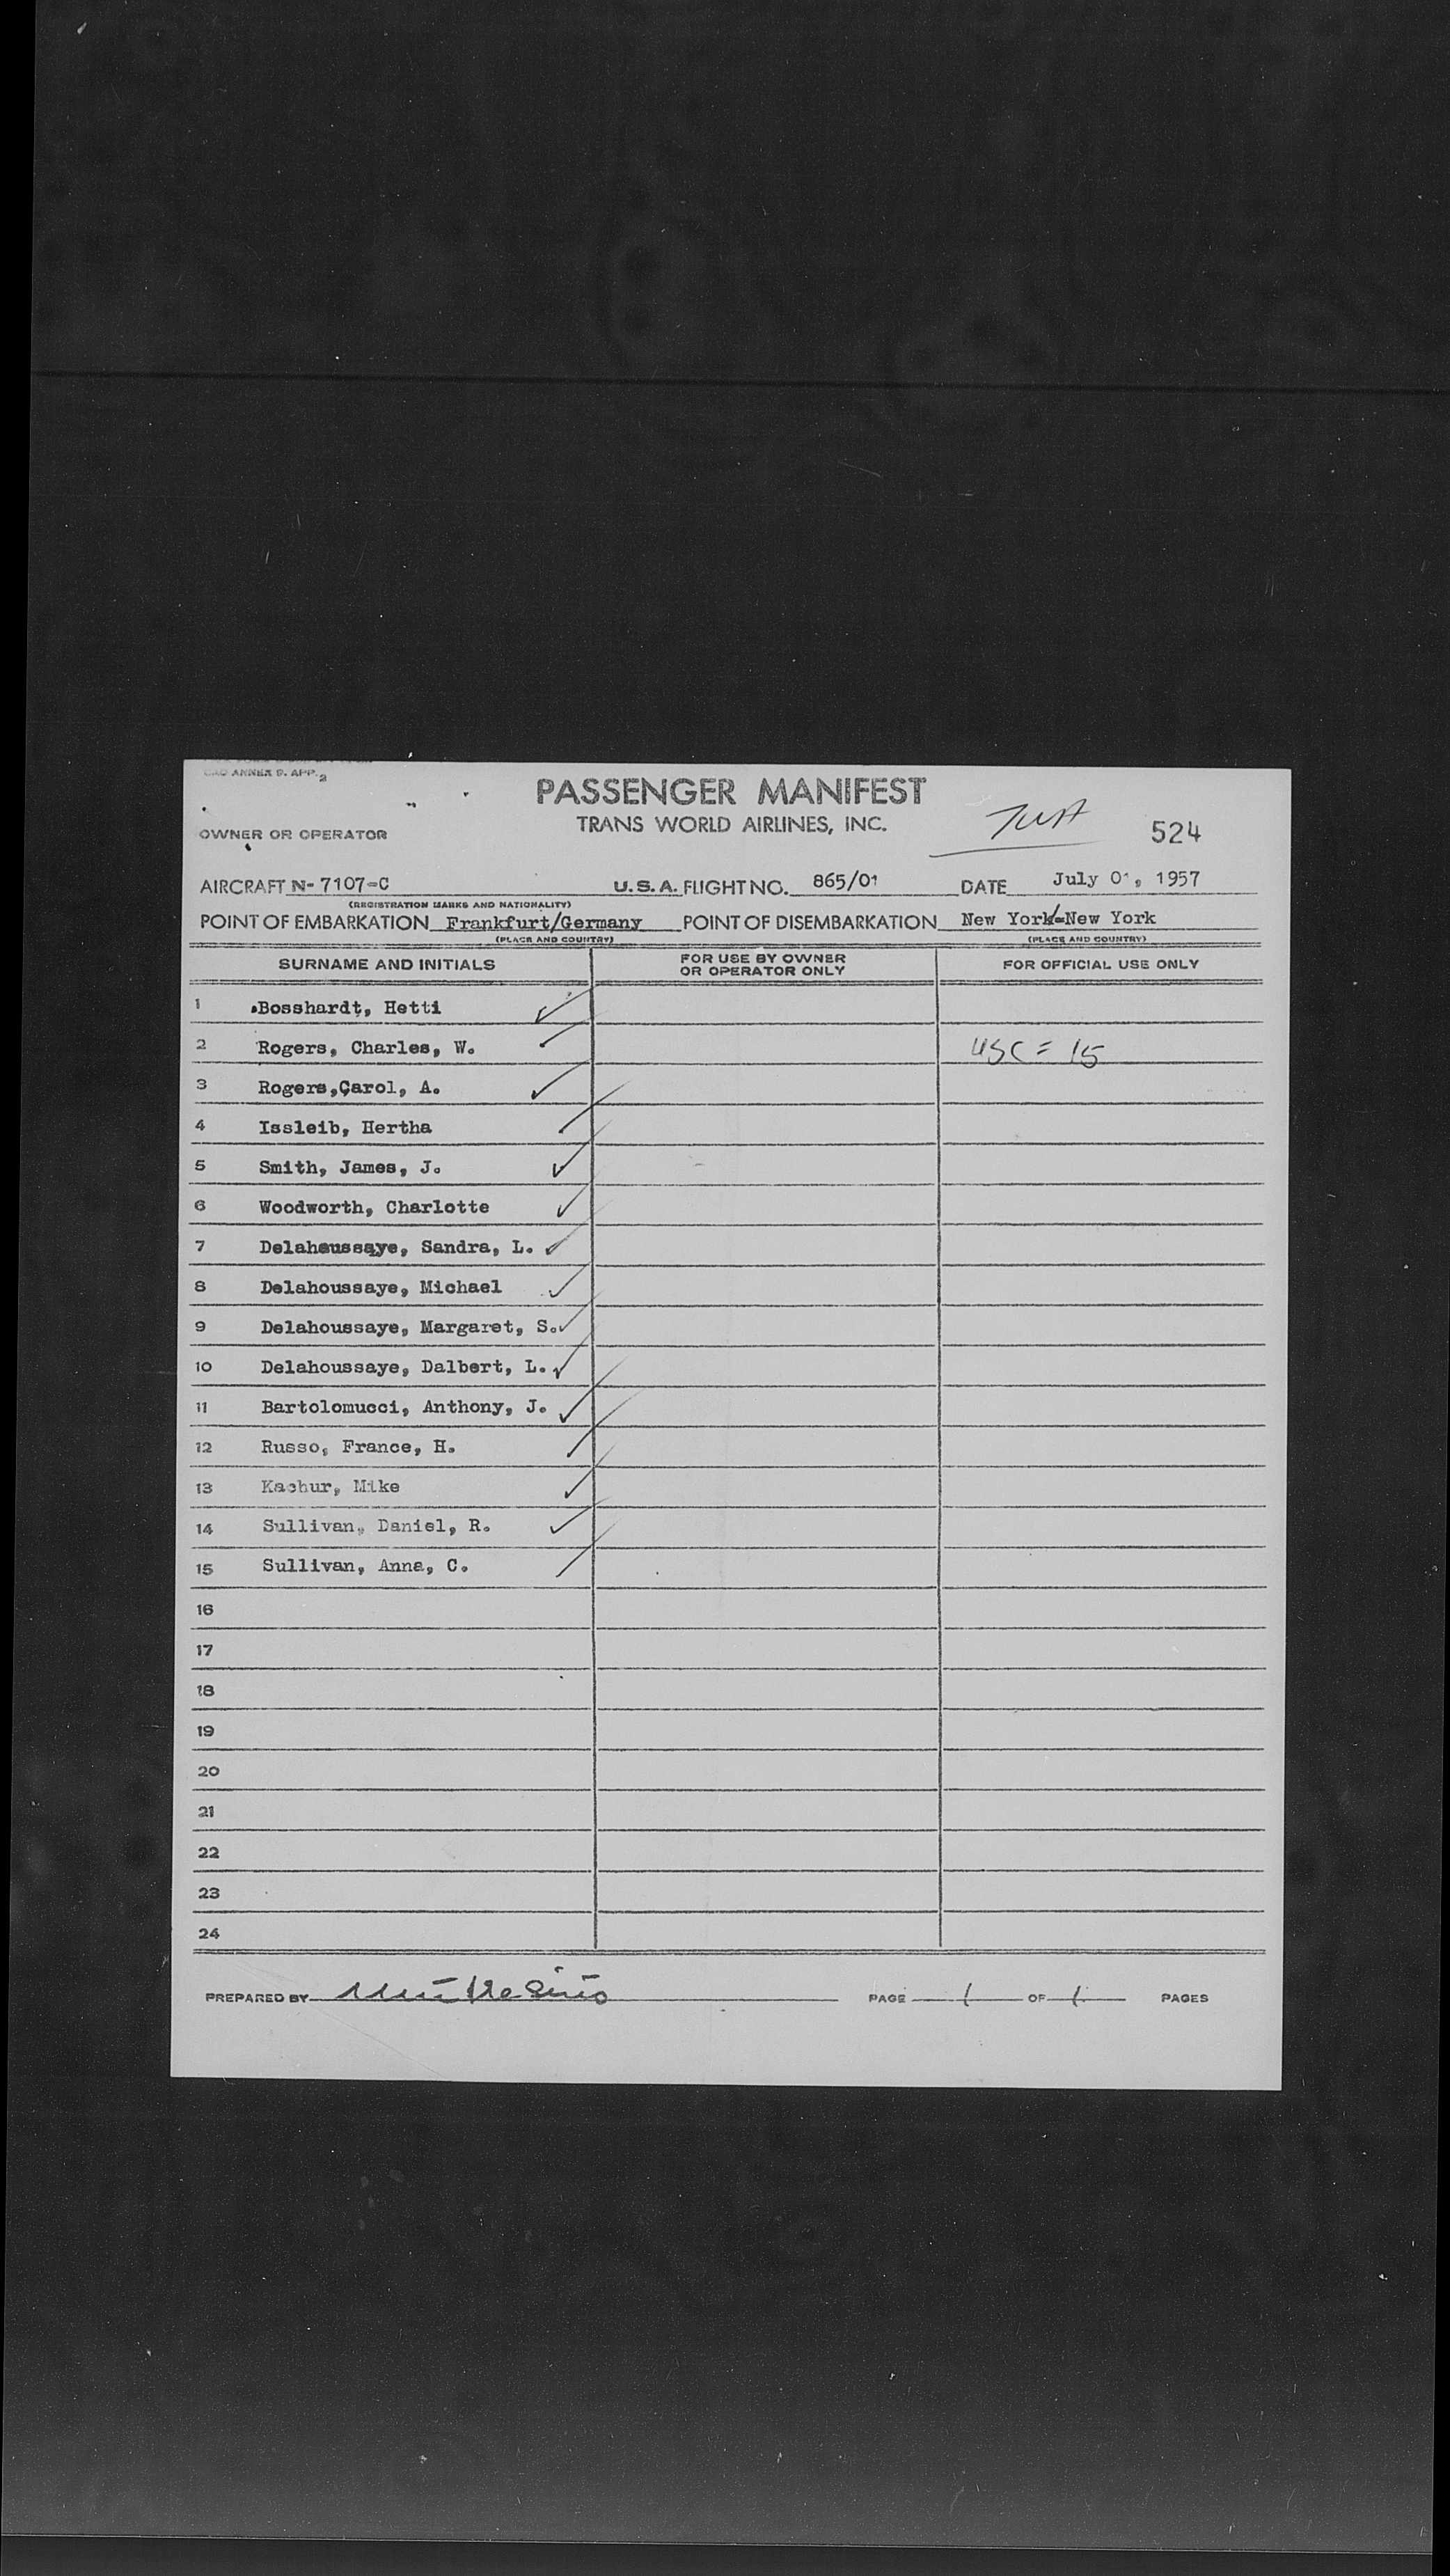 ANNEX 9. APP. 2
PASSENGER MANIFEST
TRANS WORLD AIRLINES, INC.
TWA
524
OWNER OR OPERATOR
AIRCRAFT N- 7107-C U.S.A. FLIGHT NO. 865/01 DATE July 01, 1957
(REGISTRATION MARKS AND NATIONALITY)
POINT OF EMBARKATION Frankfurt/Germany POINT OF DISEMBARKATION New York/-New York
(PLACE AND COUNTRY) (PLACE AND COUNTRY)
SURNAME AND INITIALS FOR USE BY OWNER OR OPERATOR ONLY FOR OFFICIAL USE ONLY
1 Bosshardt, Hetti ✓
2 Rogers, Charles, W. ✓ USC = 15
3 Rogers,Carol, A. ✓
4 Issleib, Hertha ✓
5 Smith, James, J. ✓
6 Woodworth, Charlotte ✓
7 Delahoussaye, Sandra, L. ✓
8 Delahoussaye, Michael ✓
9 Delahoussaye, Margaret, S. ✓
10 Delahoussaye, Dalbert, L. ✓
11 Bartolomucci, Anthony, J. ✓
12 Russo, France, H. ✓
13 Kachur, Mike ✓
14 Sullivan, Daniel, R. ✓
15 Sullivan, Anna, C. /
16
17
18
19
20
21
22
23
24
PREPARED BY PAGE 1 OF 1 PAGES